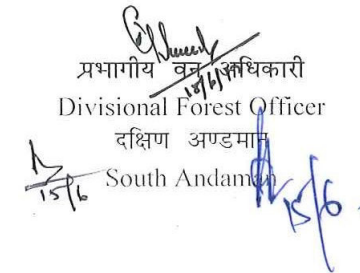 प्रभागीय वन अधिकारी
Divisional Forest Officer
दक्षिण अण्डमान
South Andaman
15/6
15/6